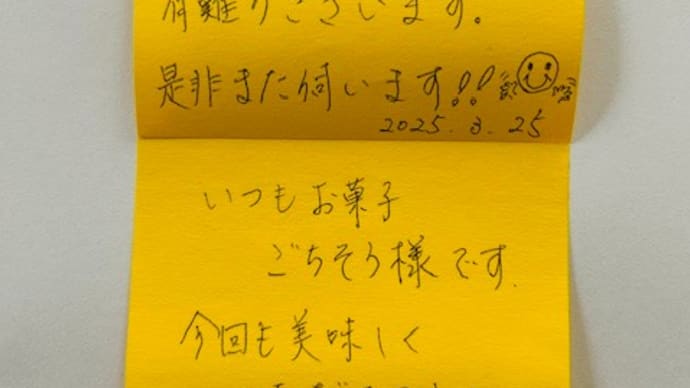 有難うございます。
是非また伺います!!
2025.3.25
いつもお菓子
ごちそう様です.
今回も美味しく